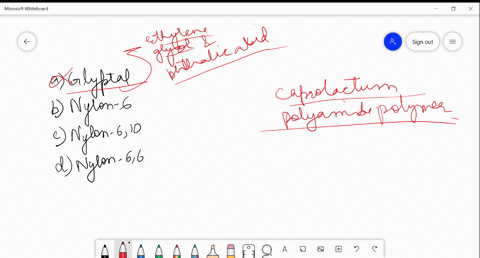 Microsoft Whiteboard
Sign out
ethylene
glycol &
phthalic acid
a) Glyptal
b) Nylon-6
c) Nylon-6,10
d) Nylon-6,6
caprolactum
polyamide polymer